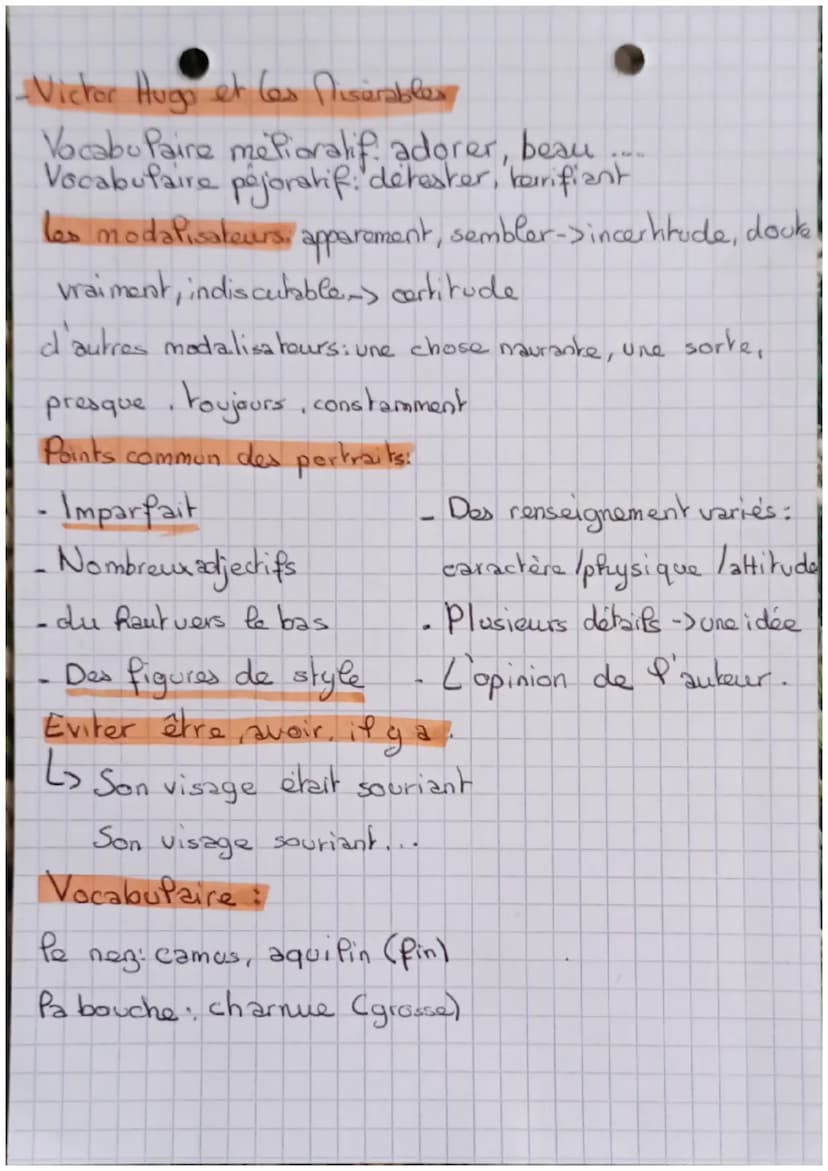 - Victor Hugo et Les Misérables
Vocabulaire mélioratif: adorer, beau ....
Vocabulaire péjoratif: détester, terrifiant
Les modalisateurs: apparement, sembler -> incertitude, doute
vraiment, indiscutable -> certitude
d'autres modalisateurs: une chose navrante, une sorte,
presque, toujours, constamment
Points commun des portraits:
- Imparfait
- Nombreux adjectifs
- du haut vers le bas
- Des figures de style
- Des renseignement variés:
caractère /physique /attitude
- Plusieurs détails -> une idée
- L'opinion de l'auteur.
Eviter être, avoir, il y a.
↳ Son visage était souriant
Son visage souriant...
Vocabulaire :
le nez: camus, aquilin (fin)
la bouche: charnue (grosse)